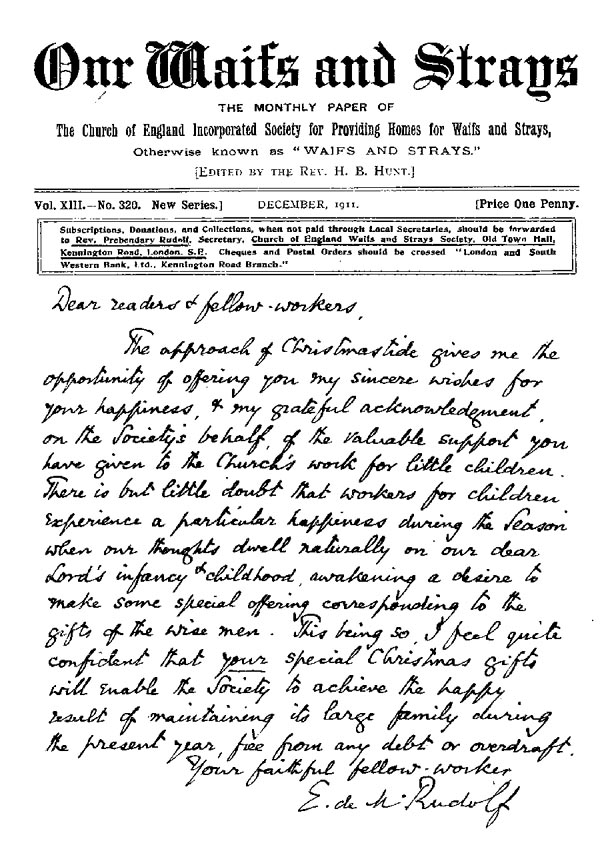 Our Waifs and Strays
THE MONTHLY PAPER OF
The Church of England Incorporated Society for Providing Homes for Waifs and Strays,
Otherwise known as "WAIFS AND STRAYS."
[EDITED BY THE REV. H. B. HUNT.]
Vol. XIII.—No. 320. New Series.] DECEMBER, 1911. [Price One Penny.
Subscriptions, Donations, and Collections, when not paid through Local Secretaries, should be forwarded
to Rev. Prebendary Rudolf, Secretary, Church of England Waifs and Strays Society, Old Town Hall,
Kennington Road, London, S.E. Cheques and Postal Orders should be crossed "London and South
Western Bank, Ltd., Kennington Road Branch."
Dear readers & fellow-workers,
The approach of Christmastide gives me the
opportunity of offering you my sincere wishes for
your happiness, & my grateful acknowledgment,
on the Society's behalf, of the valuable support you
have given to the Church's work for little children.
There is but little doubt that workers for children
experience a particular happiness during the Season
when our thoughts dwell naturally on our dear
Lord's infancy & childhood, awakening a desire to
make some special offering corresponding to the
gifts of the wise men. This being so, I feel quite
confident that your special Christmas gifts
will enable the Society to achieve the happy
result of maintaining its large family during
the present year, free from any debt or overdraft.
Your faithful fellow-worker
E. de M. Rudolf